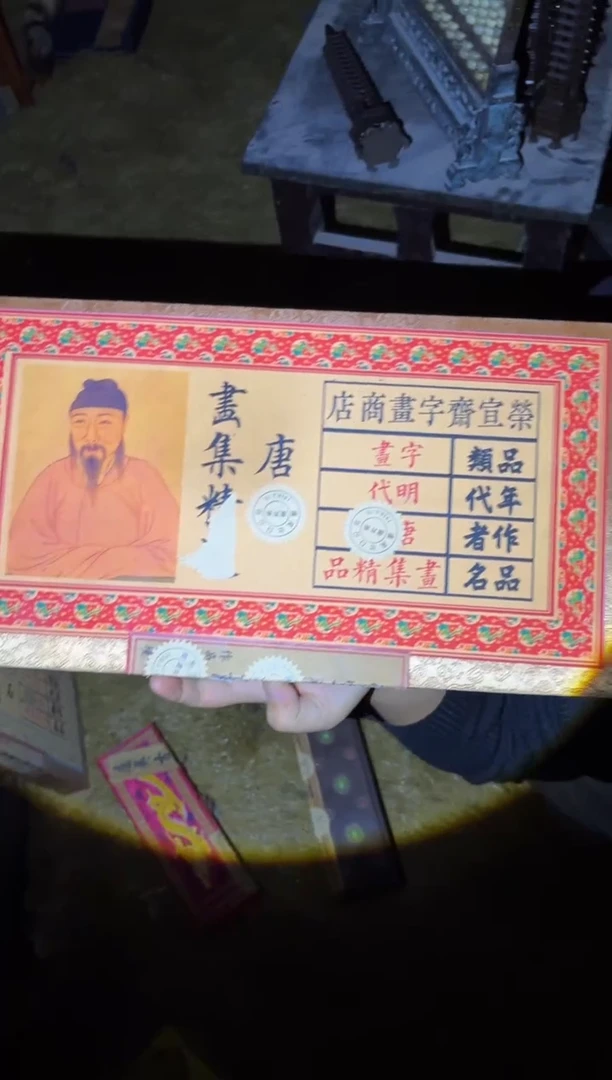 榮宣齋字畫商店
品類 字畫
年代 明代
作者 唐
品名 畫集精品
唐
畫集精